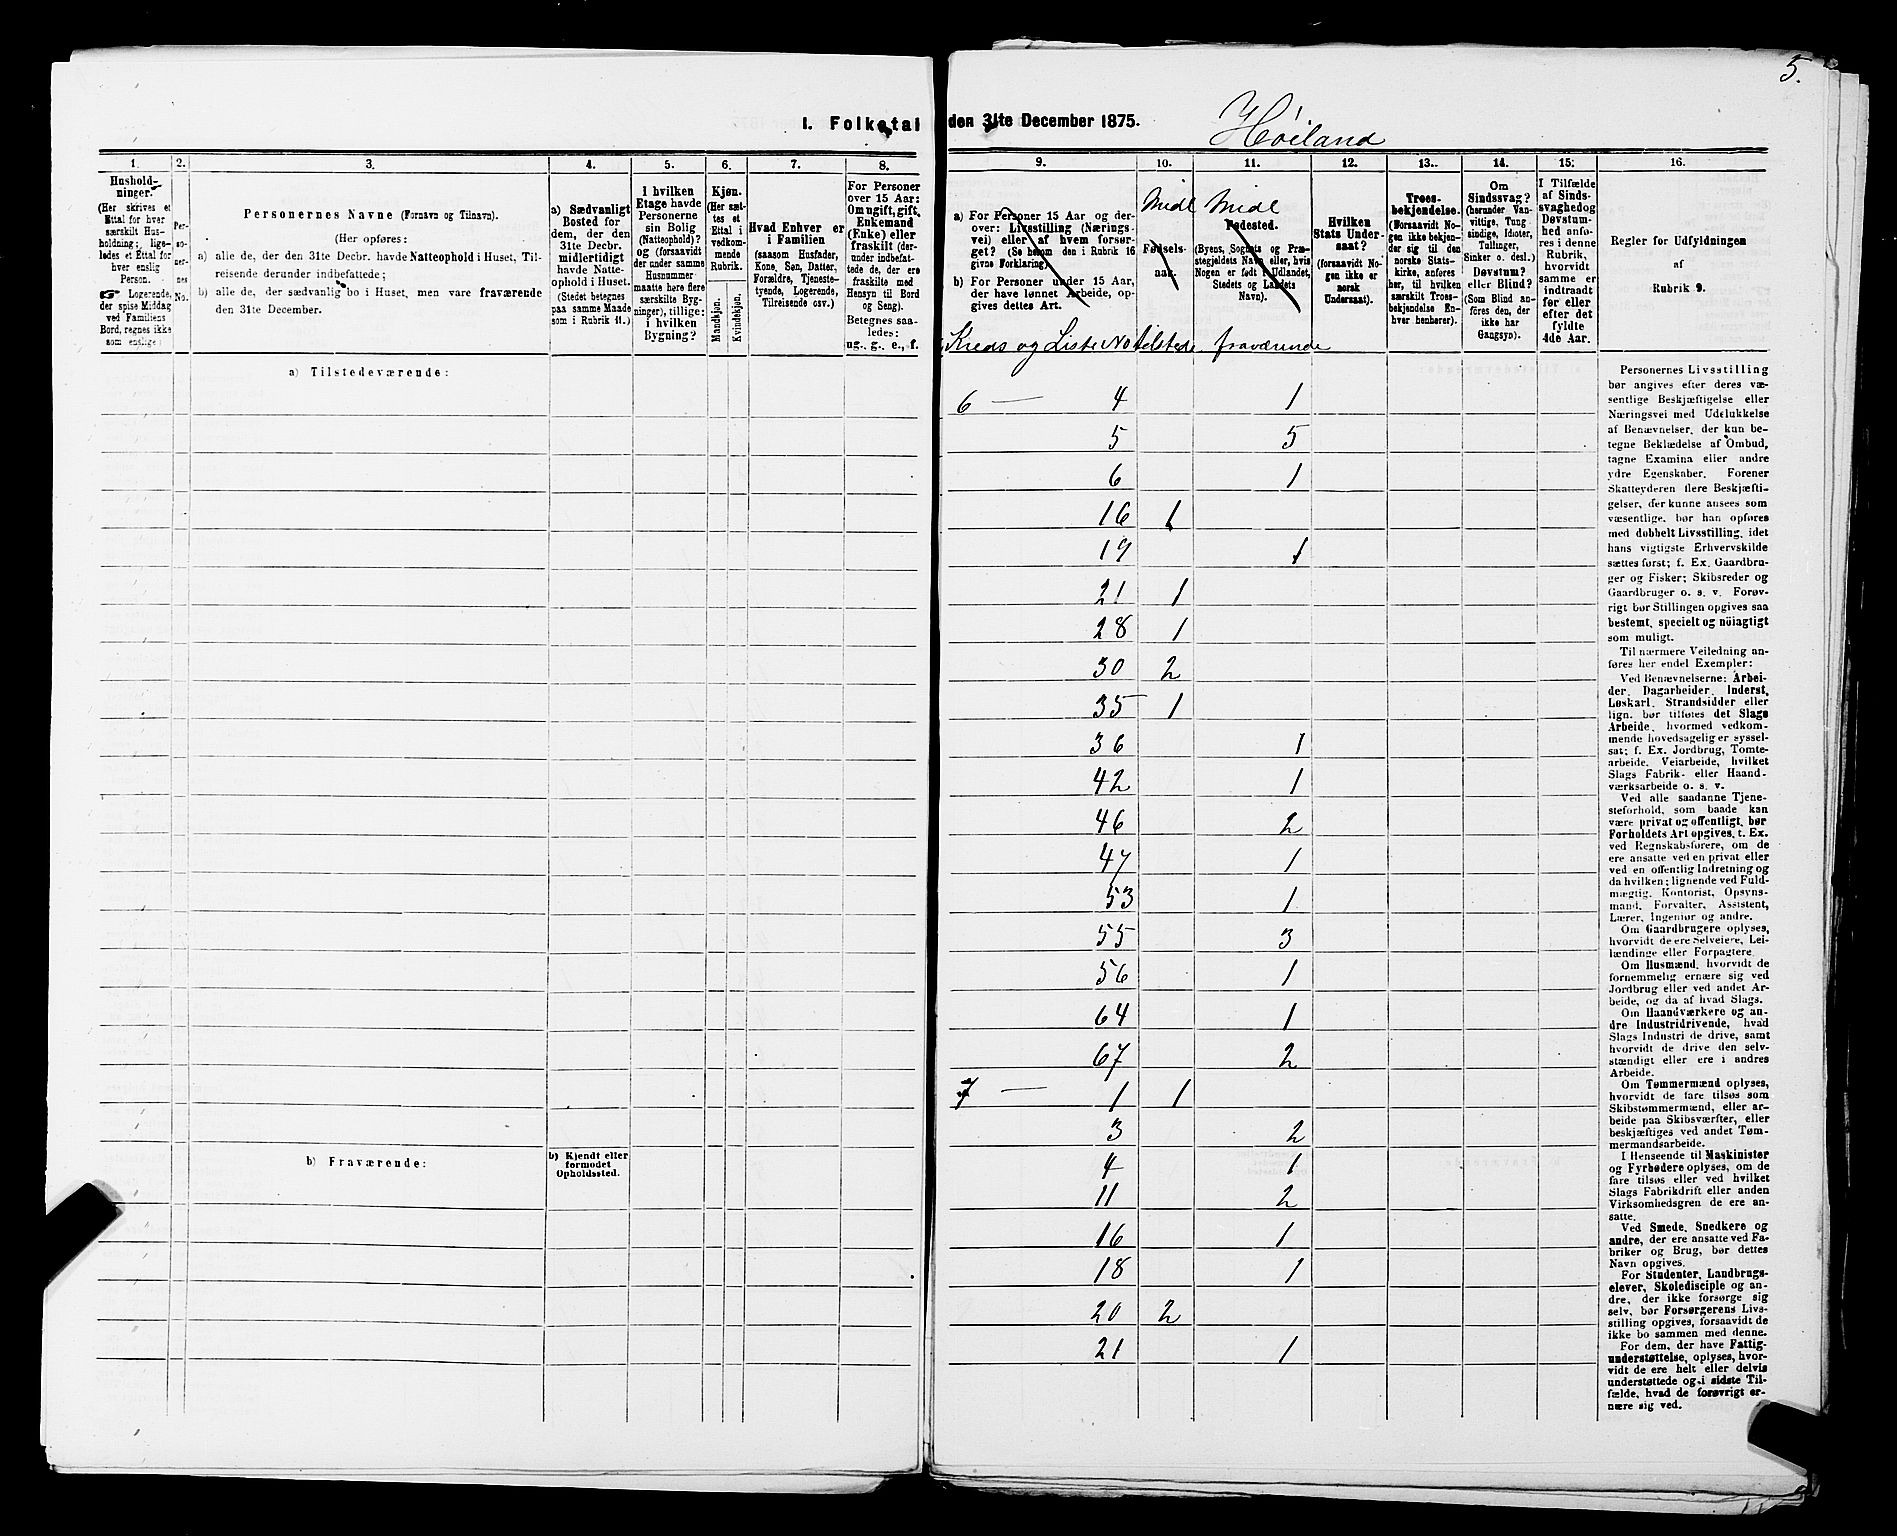 5.
I. Folketal den 31te December 1875.
Høiland
1.
Hushold-
ninger.
(Her skrives et
Ettal for hver
særskilt Hus-
holdning; lige-
ledes et Ettal for
hver enslig
Person.
☞ Logerende,
der spise Middag
ved Familiens
Bord, regnes ikke
som enslige.)
2.
Per-
so-
ner-
nes
No.
3.
Personernes Navne (Fornavn og Tilnavn).
(Her opføres:
a) alle de, der den 31te Decbr. havde Natteophold i Huset, Til-
reisende derunder indbefattede;
b) alle de, der sædvanlig bo i Huset, men vare fraværende
den 31te December.
4.
a) Sædvanligt
Bosted for
dem, der den
31te Decbr.
midlertidigt
havde Natte-
ophold i Huset.
(Stedet betegnes
paa samme Maade
som i Rubrik 11.)
5.
I hvilken
Etage havde
Personerne
sin Bolig
(Natteophold)?
og (forsaavidt
der under samme
Husnummer
maatte høre flere
særskilte Byg-
ninger), tillige:
i hvilken
Bygning?
6.
Kjøn.
(Her sæt-
tes et
Ettal i
vedkom-
mende
Rubrik.
Mandkjøn.
Kvindekjøn.
7.
Hvad Enhver er
i Familien
(saasom Husfader,
Kone, Søn, Datter,
Forældre, Tjeneste-
tyende, Logerende,
Tilreisende osv.)
8.
For Personer
over 15 Aar:
Om ugift, gift,
Enkemand
(Enke) eller
fraskilt (der-
under indbefat-
tede de, der ere
fraskilte med
Hensyn til Bord
og Seng).
Betegnes saa-
ledes:
ug., g., e., f.
9.
a) For Personer 15 Aar og der-
over: Livsstilling (Nærings-
vei) eller af hvem forsør-
get? (Se herom den i Rubrik 16
givne Forklaring)
b) For Personer under 15 Aar,
der have lønnet Arbeide, op-
gives dettes Art.
10.
Midl
Fødsels-
aar.
11.
Midl
Fødested.
(Byens, Sognets og Præ-
stegjeldets Navn eller, hvis
Nogen er født i Udlandet,
Stedets og Landets
Navn).
12.
Hvilken
Stats Under-
saat?
(forsaavidt No-
gen ikke er
norsk
Undersaat).
13.
Troes-
bekjendelse.
(Forsaavidt No-
gen ikke bekjen-
der sig til den
norske Stats-
kirke, anføres
her, til hvilken
særskilt Troes-
bekjendelse En-
hver henhører).
14.
Om
Sindssvag?
(herunder Van-
vittige, Tung-
sindige, Idioter,
Tullinger,
Sinker o. desl.)
Døvstum?
eller Blind?
(Som Blind an-
føres den, der
ikke har
Gangsyn).
15.
I Tilfælde
af Sinds-
svaghed og
Døvstum-
hed anfø-
res i denne
Rubrik,
hvorvidt
samme er
indtraadt
før eller
efter det
fyldte
4de Aar.
16.
Regler for Udfyldningen
af
Rubrik 9.
Kreds og Liste No tilstede fraværende
a) Tilstedeværende:
6 — 4 1
5 5
6 1
16 1
19 1
21 1
28 1
30 2
35 1
36 1
42 1
46 2
47 1
53 1
55 3
56 1
64 1
67 2
7 — 1 1
3 2
b) Fraværende:
b) Kjendt eller
formodet
Opholdssted.
4 1
11 2
16 1
18 1
20 2
21 1
Personernes Livsstilling
bør angives efter deres væ-
sentlige Beskjæftigelse eller
Næringsvei med Udelukkelse
af Benævnelser, der kun be-
tegne Beklædelse af Ombud,
tagne Examina eller andre
ydre Egenskaber. Forener
Skatteyderen flere Beskjæfti-
gelser, der kunne ansees som
væsentlige, bør han opføres
med dobbelt Livsstilling, idet
hans vigtigste Erhvervskilde
sættes først; f. Ex. Gaardbru-
ger og Fisker; Skibsreder og
Gaardbruger o. s. v. Forøv-
rigt bør Stillingen opgives saa
bestemt, specielt og nöiagtigt
som muligt.
Til nærmere Veiledning an-
føres her endel Exempler:
Ved Benævnelserne: Arbei-
der, Dagarbeider, Inderst,
Løskarl, Strandsidder eller
lign. bør tilføies det Slags
Arbeide, hvormed vedkom-
mende hovedsagelig er syssel-
sat; f. Ex. Jordbrug, Tomte-
arbeide, Veiarbeide, hvilket
Slags Fabrik- eller Haand-
værksarbeide o. s. v.
Ved alle saadanne Tjene-
steforhold, som baade kan
være privat og offentligt, bør
Forholdets Art opgives, t. Ex.
ved Regnskabsførere, om de
ere ansatte ved en privat eller
ved en offentlig Indretning og
da hvilken; lignende ved Fuld-
mægtig, Kontorist, Opsyns-
mand, Forvalter, Assistent,
Lærer, Ingeniør og andre.
Om Gaardbrugere oplyses,
hvorvidt de ere Selveiere, Lei-
lændinge eller Forpagtere.
Om Husmænd, hvorvidt de
fornemmelig ernære sig ved
Jordbrug eller ved andet Ar-
beide, og da af hvad Slags.
Om Haandværkere og an-
dre Industridrivende, hvad
Slags Industri de drive, samt
hvorvidt de drive den selv-
stændigt eller ere i andres
Arbeide.
Om Tømmermænd oplyses,
hvorvidt de fare tilsøs som
Skibstømmermænd, eller ar-
beide paa Skibsværfter, eller
beskjæftiges ved andet Tøm-
mermandsarbeide.
I Henseende til Maskinister
og Fyrbødere oplyses, om de
fare tilsøs eller ved hvilket
Slags Fabrikdrift eller anden
Virksomhedsgren de ere an-
satte.
Ved Smede, Snedkere og
andre, der ere ansatte ved Fa-
briker og Brug, bør dettes
Navn opgives.
For Studenter, Landbrugs-
elever, Skoledisciple og an-
dre, der ikke forsørge sig
selv, bør Forsørgerens Livs-
stilling opgives, forsaavidt de
ikke bo sammen med denne.
For dem, der have Fattig-
understøttelse, oplyses, hvor-
vidt de ere helt eller delvis
understøttede og i sidste Til-
fælde, hvad de forøvrigt er-
nære sig ved.